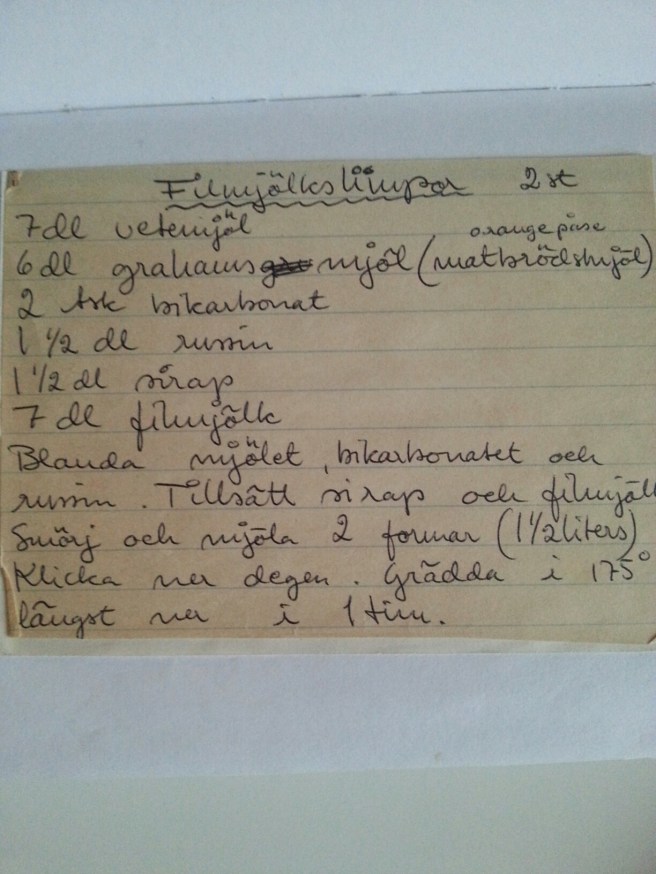 Filmjölkslimpor 2 st
7 dl vetemjöl
orange påse
6 dl grahamsmjöl (matbrödsmjöl)
2 tsk bikarbonat
1 1/2 dl russin
1 1/2 dl sirap
7 dl filmjölk
Blanda mjölet, bikarbonatet och
russin. Tillsätt sirap och filmjölk
Smörj och mjöla 2 formar (1 1/2 liters)
Klicka ner degen. Grädda i 175°
längst ner i 1 tim.